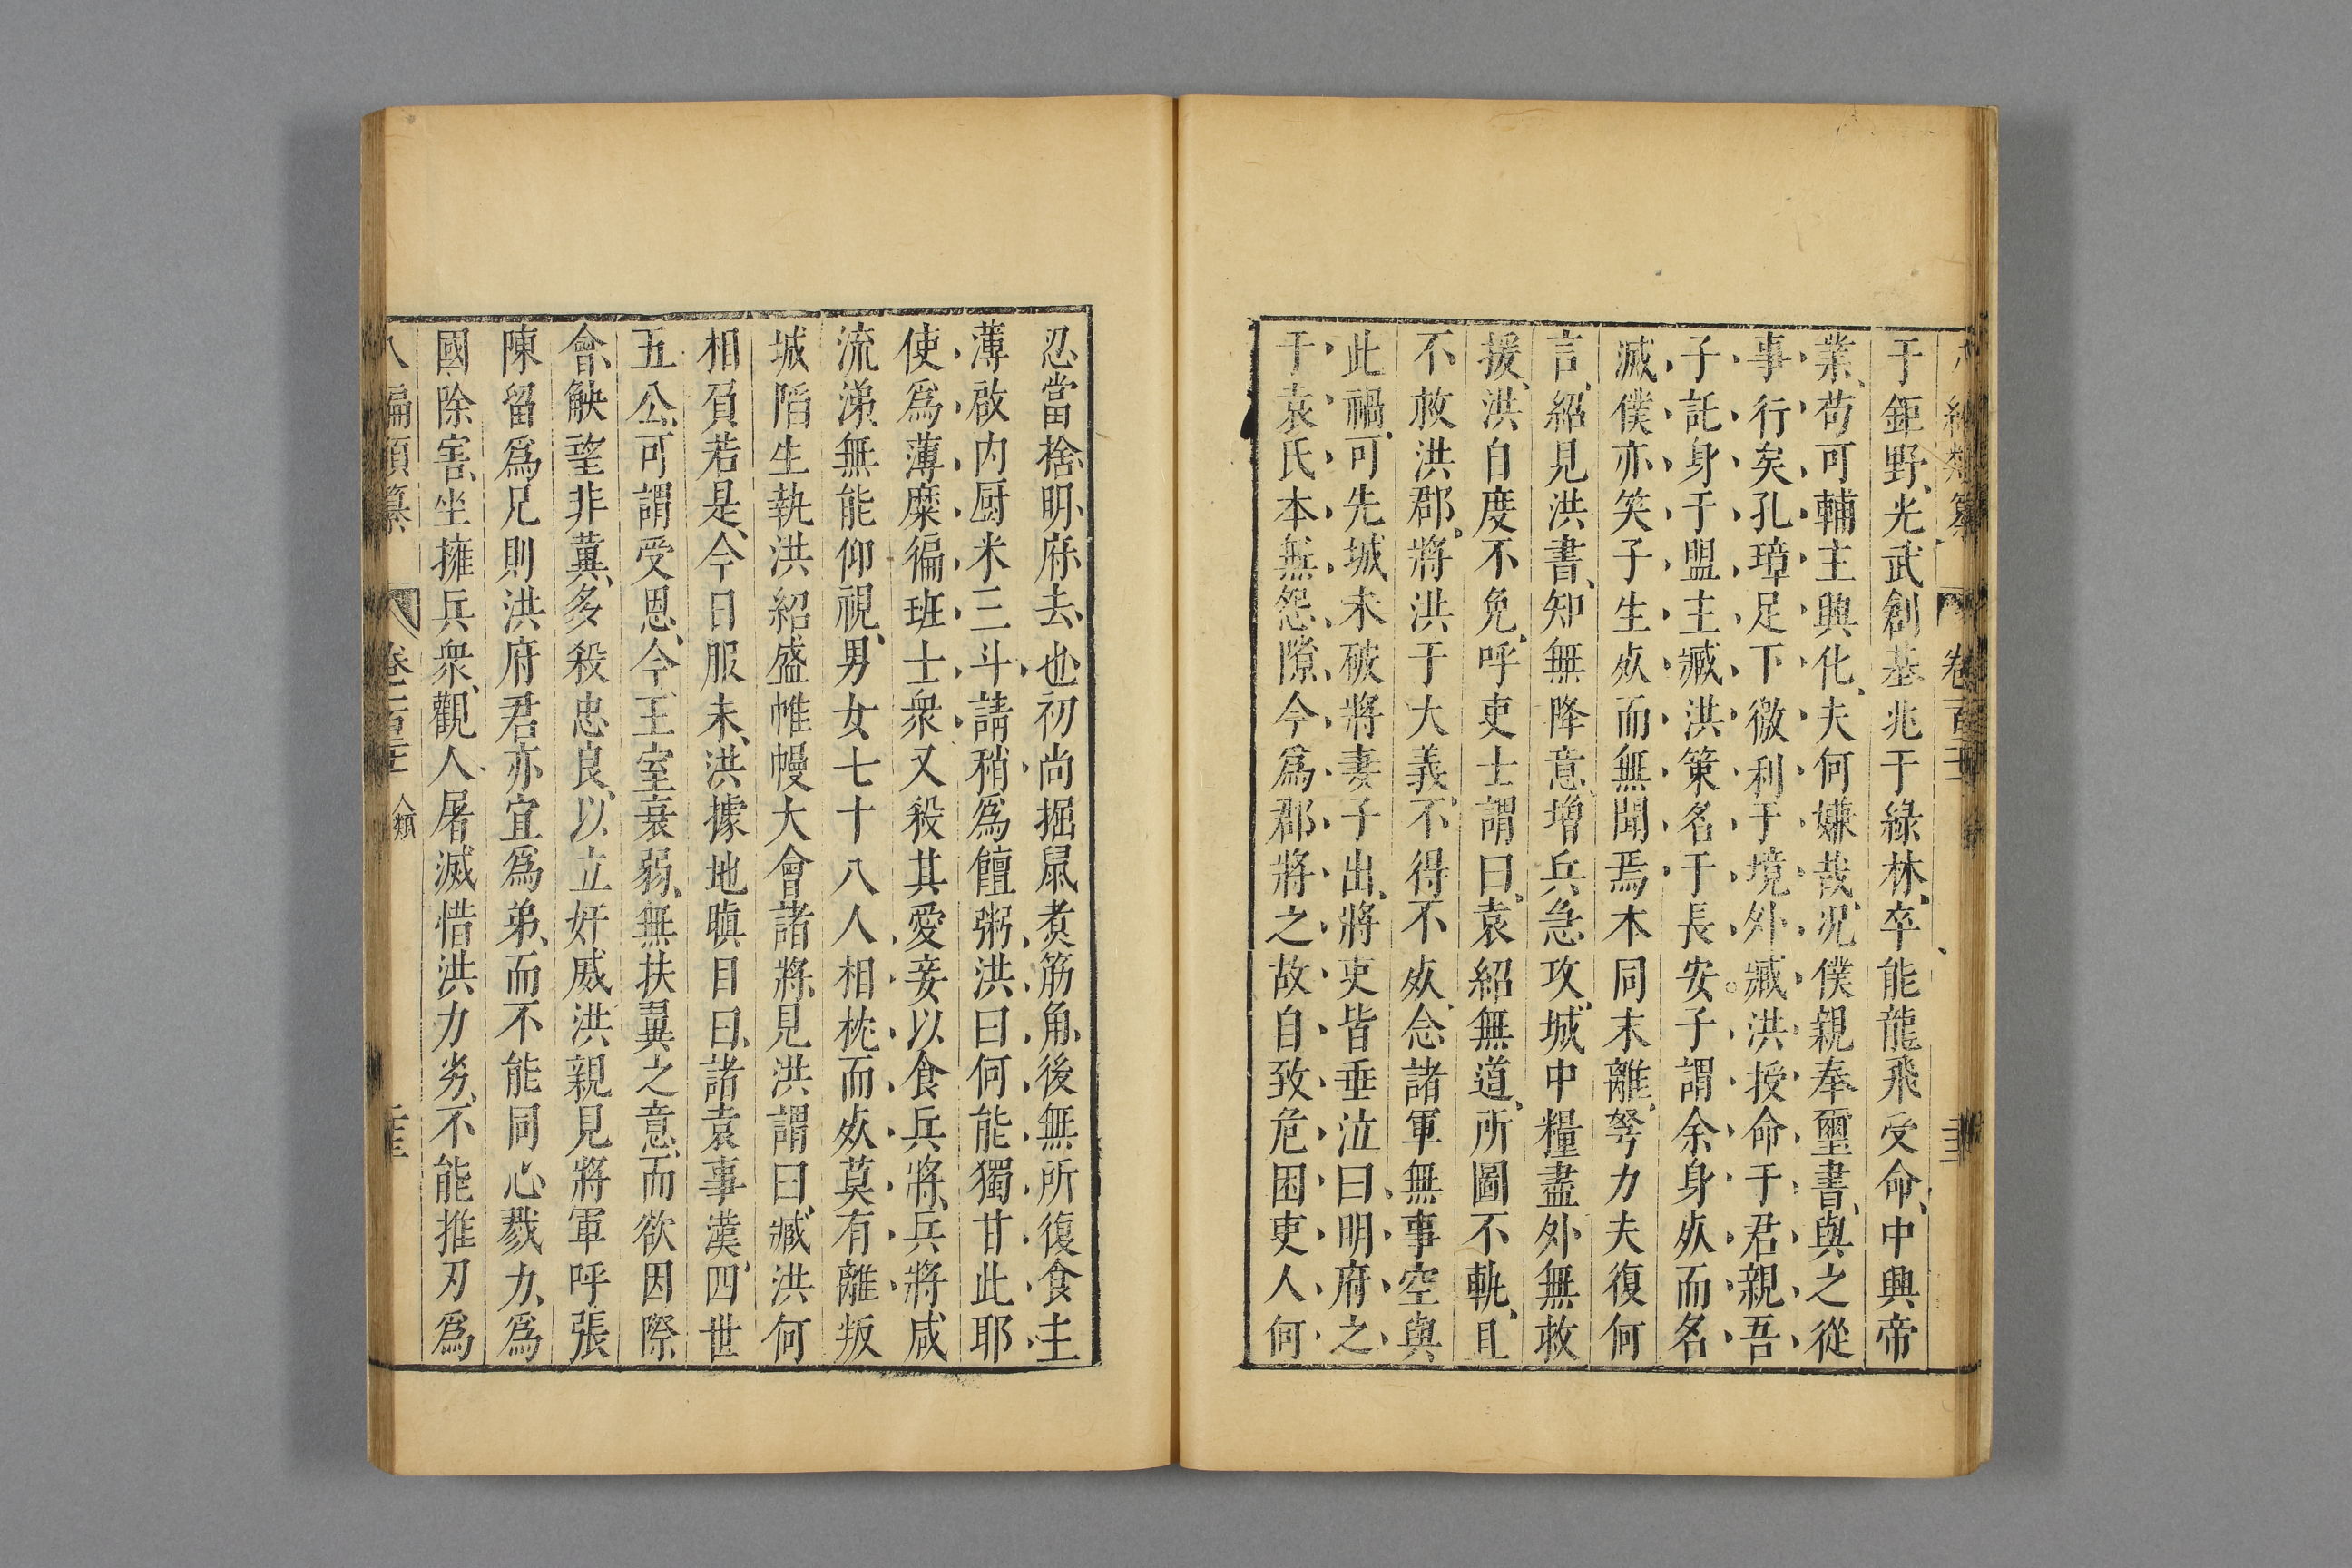 于鉅野光武創基兆于綠林卒能龍飛受命中興帝
業苟可輔主興化夫何嫌哉况僕親奉璽書與之從
事行矣孔璋足下徼利于境外臧洪授命于君親吾
子託身于盟主臧洪策名于長安子謂余身歿而名
滅僕亦笑子生歿而無聞焉本同末離努力夫復何
言紹見洪書知無降意增兵急攻城中糧盡外無救
援洪自度不免呼吏士謂曰袁紹無道所圖不軌且
不救洪郡將洪于大義不得不歿念諸軍無事空與
此禍可先城未破將妻子出將吏皆垂泣曰明府之
于袁氏本無怨隙今為郡將之故自致危困吏人何
忍當捨明府去也初尚掘鼠煮筋角後無所復食主
薄啟内厨米三斗請稍為饘粥洪曰何能獨甘此耶
使為薄糜徧班士衆又殺其愛妾以食兵將兵將咸
流涕無能仰視男女七十八人相枕而歿莫有離叛
城陷生執洪紹盛帷幔大會諸將見洪謂曰臧洪何
相負若是今日服未洪據地瞋目曰諸袁事漢四世
五公可謂受恩今王室衰弱無扶翼之意而欲因際
會觖望非冀多殺忠良以立奸威洪親見將軍呼張
陳留為兄則洪府君亦宜為弟而不能同心戮力為
國除害坐擁兵衆觀人屠滅惜洪力劣不能推刃為
八編類纂 卷 人類